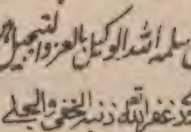 سلمه الله الوكيل بالعز والتبجيل
غفر الله ذنبه الخفي والجلي